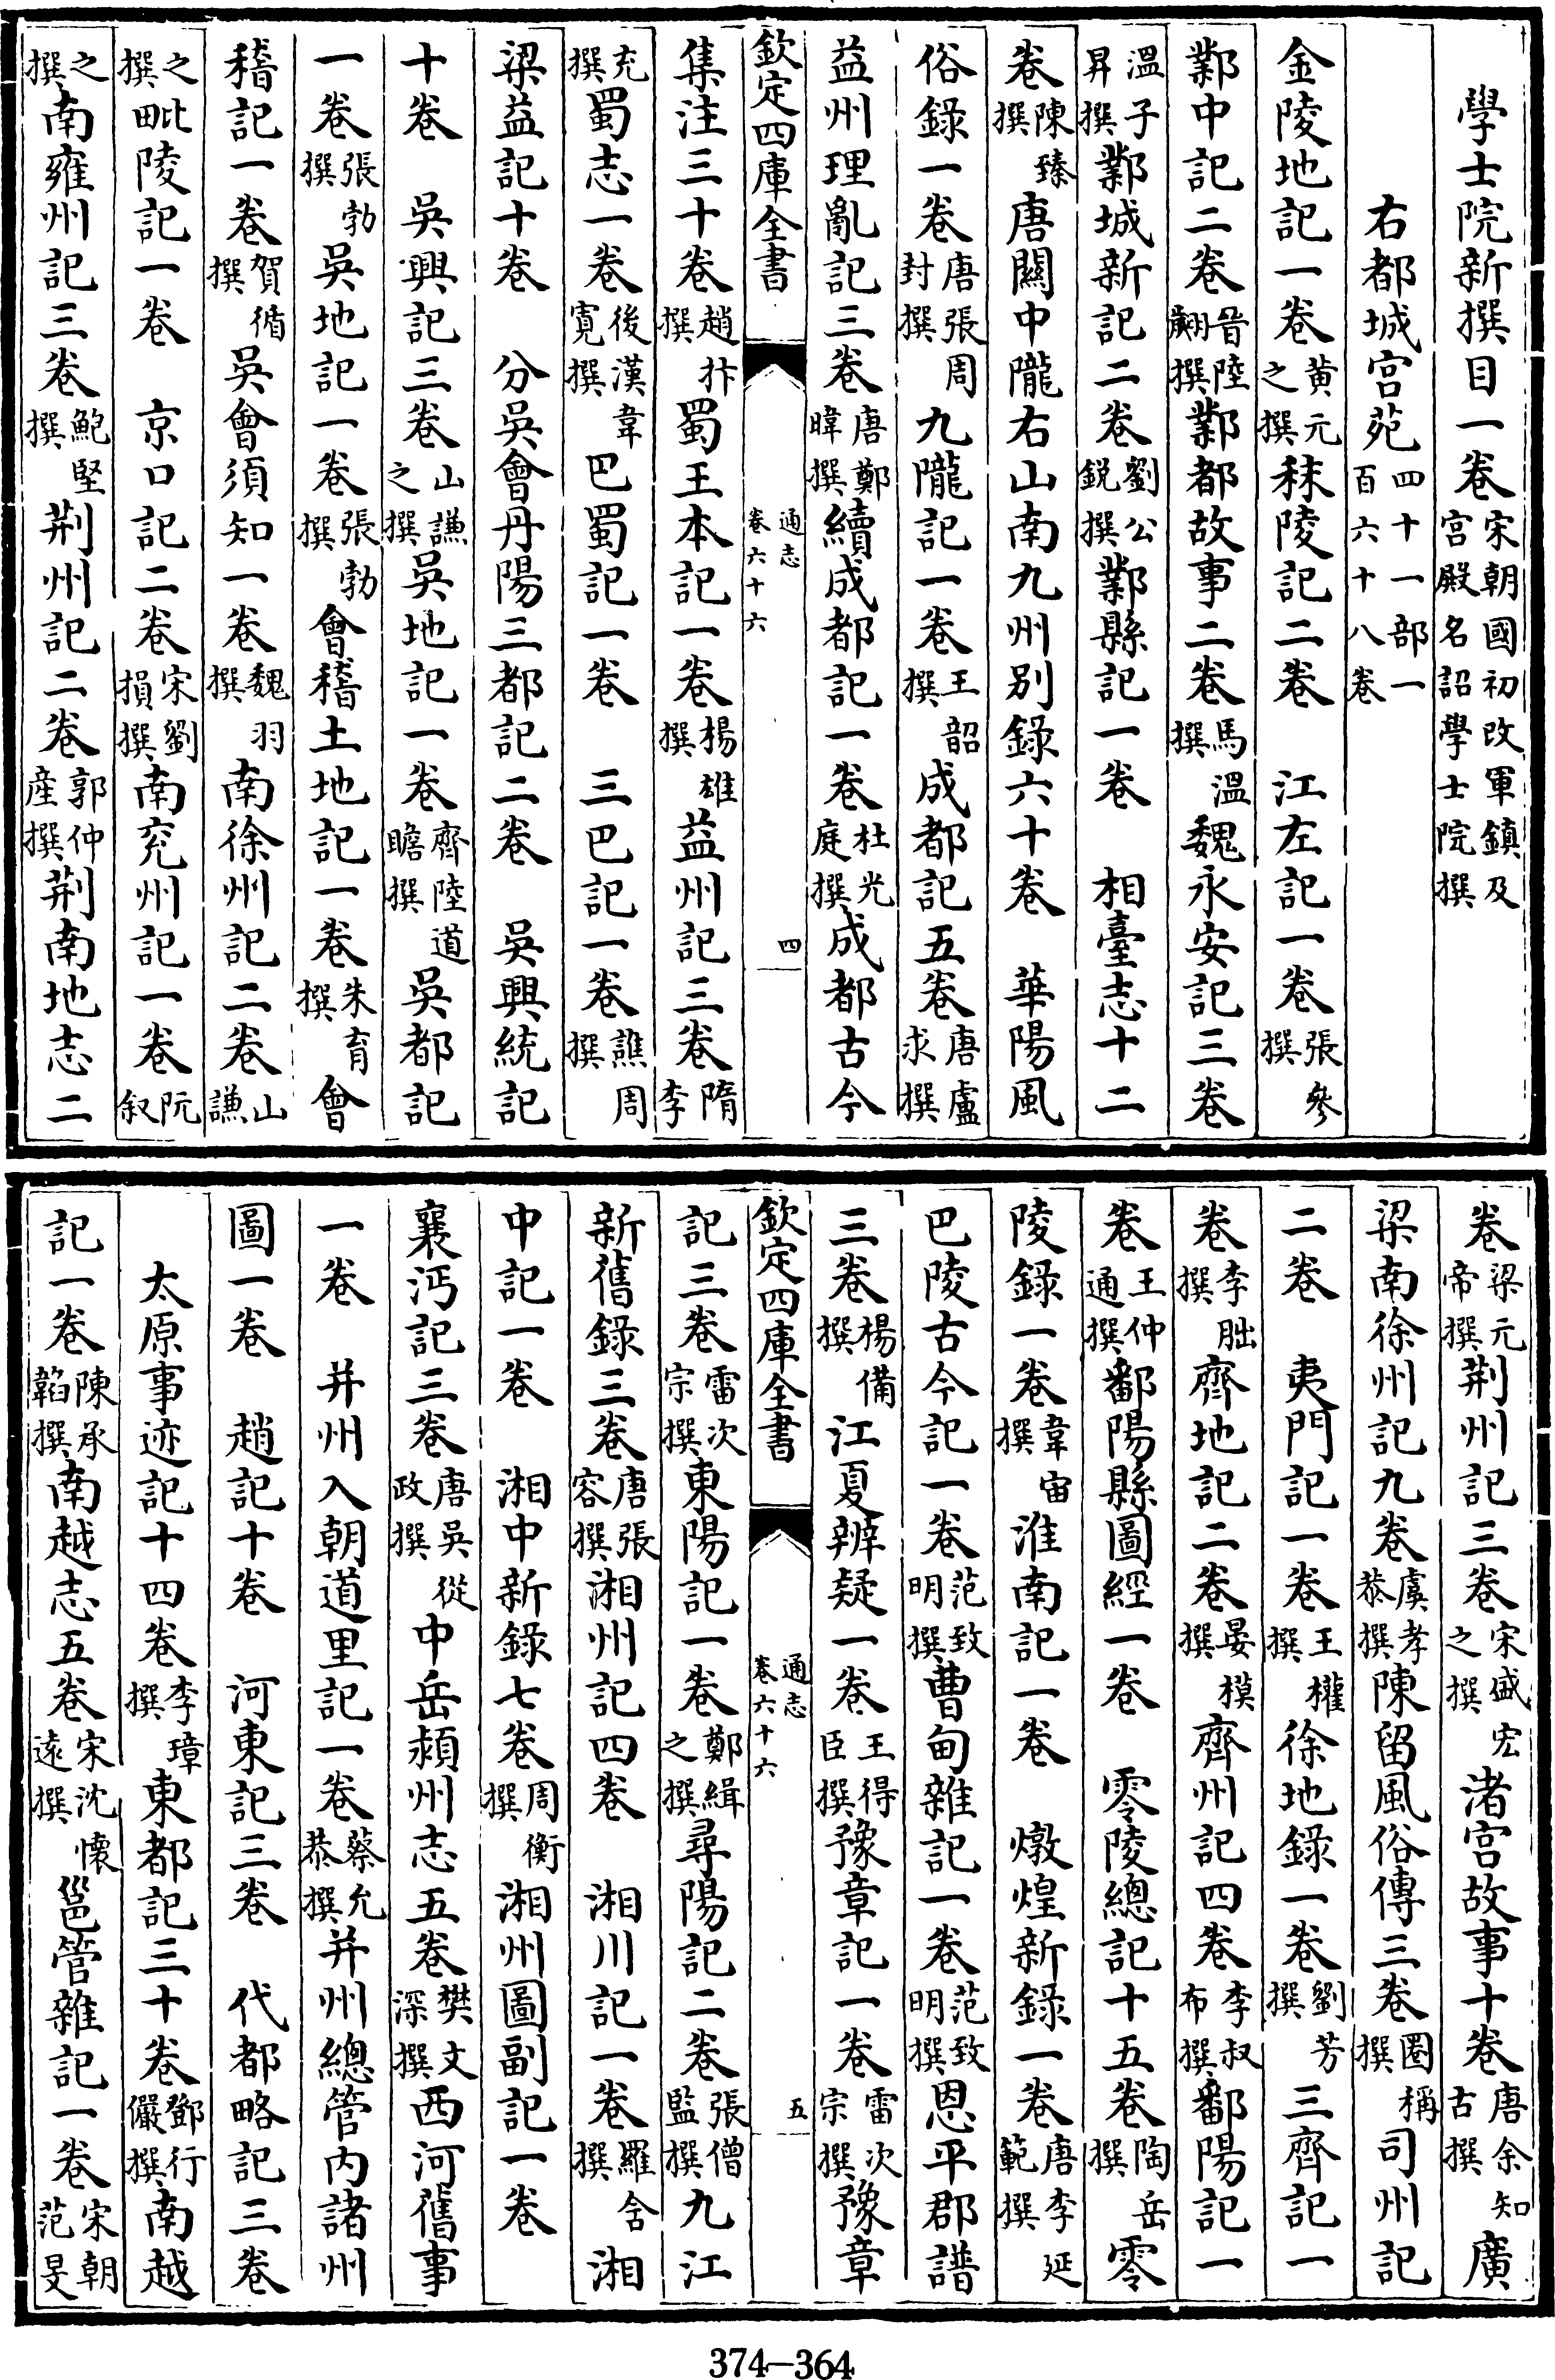 學士院新撰目一卷宋朝國初改軍鎮及宫殿名詔學士院撰
右都城宫苑四十一部一百六十八卷
金陵地記一卷黄元之撰秣陵記二卷 江左記一卷張參撰
鄴中記二卷晉陸翽撰鄴都故事二卷馬溫撰魏永安記三卷
溫子昇撰鄴城新記二卷劉公銳撰鄴縣記一卷 相臺志十二
卷陳臻撰唐關中隴右山南九州别錄六十卷 華陽風
俗錄一卷唐張周封撰九隴記一卷王韶撰成都記五卷唐盧求撰
益州理亂記三卷唐鄭暐撰續成都記一卷杜光庭撰成都古今
欽定四庫全書 通志卷六十六 四
集注三十卷趙抃撰蜀王本記一卷楊雄撰益州記三卷隋李
充撰蜀志一卷後漢韋寛撰巴蜀記一卷 三巴記一卷譙周撰
梁益記十卷 分吳會丹陽三都記二卷 吳興統記
十卷 吳興記三卷山謙之撰吳地記一卷齊陸道瞻撰吳都記
一卷張勃撰吳地記一卷張勃撰會稽土地記一卷朱育撰會
稽記一卷賀循撰吳會須知一卷魏羽撰南徐州記二卷山謙
之撰毗陵記一卷 京口記二卷宋劉損撰南兖州記一卷阮叙
之撰南雍州記三卷鮑堅撰荆州記二卷郭仲産撰荆南地志二
卷梁元帝撰荆州記三卷宋盛宏之撰渚宫故事十卷唐余知古撰廣
梁南徐州記九卷虞孝恭撰陳留風俗傳三卷圈稱撰司州記
二卷 夷門記一卷王權撰徐地錄一卷劉芳撰三齊記一
卷李朏撰齊地記二卷晏模撰齊州記四卷李叔布撰鄱陽記一
卷王仲通撰鄱陽縣圖經一卷 零陵總記十五卷陶岳撰零
陵錄一卷韋宙撰淮南記一卷 燉煌新錄一卷唐李延範撰
巴陵古今記一卷范致明撰曹甸雜記一卷范致明撰恩平郡譜
三卷楊備撰江夏辨疑一卷王得臣撰豫章記一卷雷次宗撰豫章
欽定四庫全書 通志卷六十六 五
記三卷雷次宗撰東陽記一卷鄭緝之撰尋陽記二卷張僧監撰九江
新舊錄三卷唐張容撰湘州記四卷 湘川記一卷羅含撰湘
中記一卷 湘中新錄七卷周衡撰湘州圖副記一卷
襄沔記三卷唐吳從政撰中岳潁州志五卷樊文深撰西河舊事
一卷 并州入朝道里記一卷蔡允恭撰并州總管内諸州
圖一卷 趙記十卷 河東記三卷 代都略記三卷
太原事迹記十四卷李璋撰東都記三十卷鄧行儼撰南越
記一卷陳承韜撰南越志五卷宋沈懷遠撰邕管雜記一卷宋朝范旻
374-364